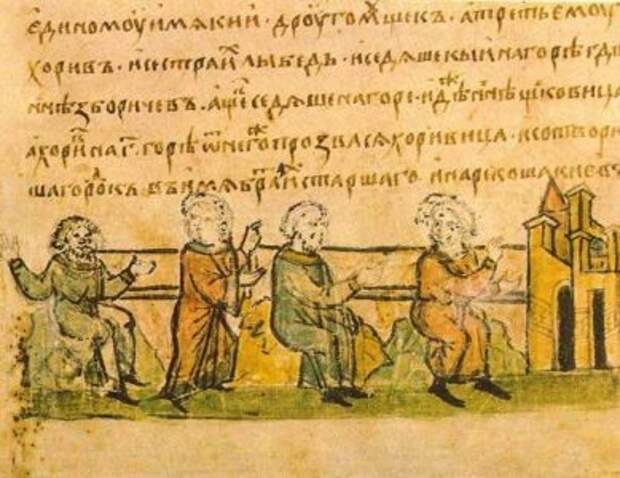 единомоу имѧ кии · дроугомꙋ щекъ · а третьемоу
хоривъ · и сестра иⷯ лыбедь · и седѧше кыи на горѣ гд
нн҃ѣ зборичевъ · а щекъ седѧше на горе · идѣⷤ нн҃ѣ щковица
а хориⷡ на г҃ горѣ ѿ негоⷤ прозвасѧ хоривица · и сотвори
ша городокъ въ имѧ браⷮ старшаго и нарекоша киевъ